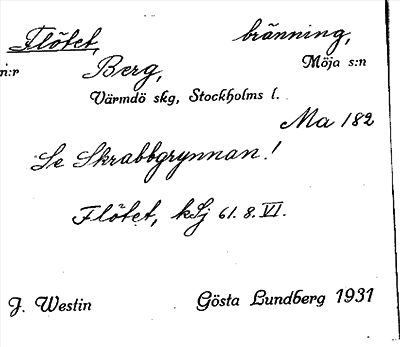 Flötet, bränning,
n:r Berg, Möja s:n
Värmdö skg, Stockholms l.
Ma 182
Se Skrabbgrynnan!
Flötet, kSj 61. 8. VI.
J. Westin Gösta Lundberg 1931